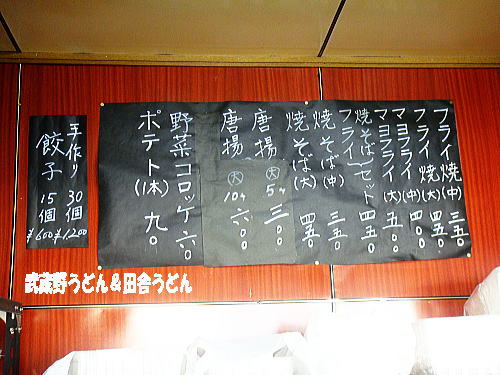 フライ焼(中) 三五〇
フライ焼(大) 四〇〇
マヨフライ(中) 四〇〇
マヨフライ(大) 四五〇
焼そば フライ セット 四五〇
焼そば(中) 三五〇
焼そば(大) 四五〇
唐揚 大 5ヶ 三〇〇
唐揚 大 10ヶ 六〇〇
野菜コロッケ 六〇
ポテト(1本) 九〇
手作り 30個 ¥1,200
餃子 15個 ¥600
武蔵野うどん＆田舎うどん